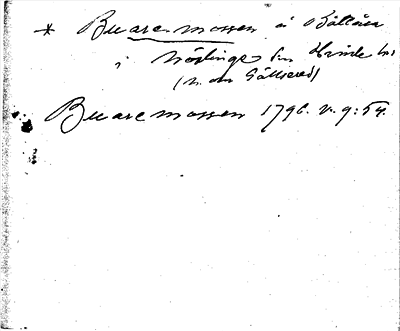 * Buaremossen å Båltåsa
i Nösslinge sn Himle hd
(N. om Gällsered)
Buaremossen 1796. N. 9:54.